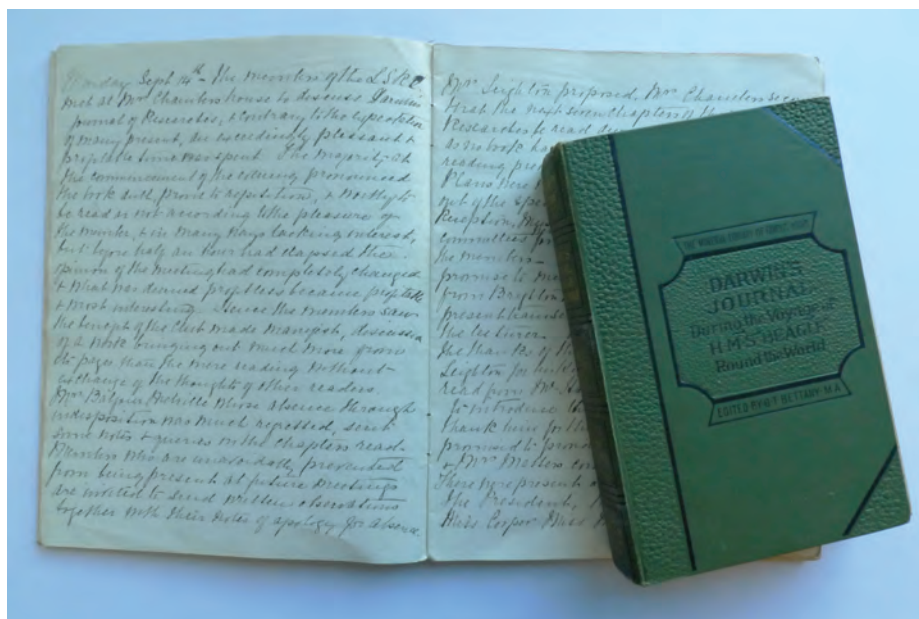 Monday Sept 14th - The members of the L.S.R.C
met at Mrs Chambers house to discuss Darwin's
Journal of Researches, & contrary to the expectation
of many present, an exceedingly pleasant &
profitable time was spent. The majority at
the commencement of the evening pronounced
the book dull, prone to repetition, & worthy to
be read as not according to the pleasure of
the reader, & in many ways lacking interest,
but before half an hour had elapsed the
opinion of the meeting had completely changed
& what was deemed profitless became profitable
& most interesting. Hence the members saw
the benefit of the Club made manifest, discussion
of a work bringing out much more from
its pages than the mere reading without
exchange of the thoughts of other readers.
Mrs Melville whose absence through
indisposition was much regretted, sent
some notes & queries on the chapters read.
Members who are unavoidably prevented
from being present at future meetings
are invited to send written observations
together with their notes of apology for absence.
Mrs Leighton proposed, Mrs Chambers
that the next seven chapters of the
Researches be read
as no book ha
reading
Plans were
out of the spe
Reception,
committee
the members
promise to me
from Brighton
present
the lecturer
the thanks of
Leighton for
read from Mr
to introduce th
thank him for th
promised to
& Mrs Mellers con
There were present
the President,
Miss Cooper Miss
THE MINERVA LIBRARY OF FAMOUS BOOKS
DARWIN'S
JOURNAL
During the Voyage of
H.M.S. "BEAGLE"
Round the World
EDITED BY G.T. BETTANY. M.A.